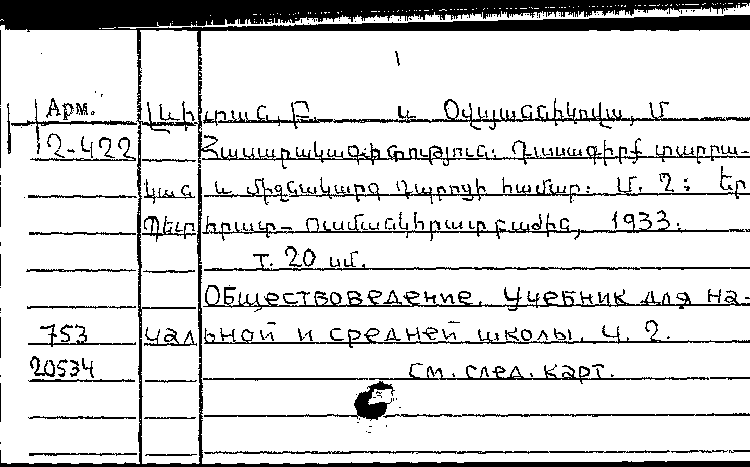 1
Арм. Լևիտան, Բ. և Օվսյաննիկովա, Մ
2-422 Հասարակագիտություն: Դասագիրք տարրա-
կան և միջնակարգ դպրոցի համար: Մ. 2: Եր
Պետհրատ- Ուսմանկհրատբաժին, 1933.
т. 20 սմ.
Обществоведение. Учебник для на-
753 чальной и средней школы. Ч. 2.
20534 См. след. карт.